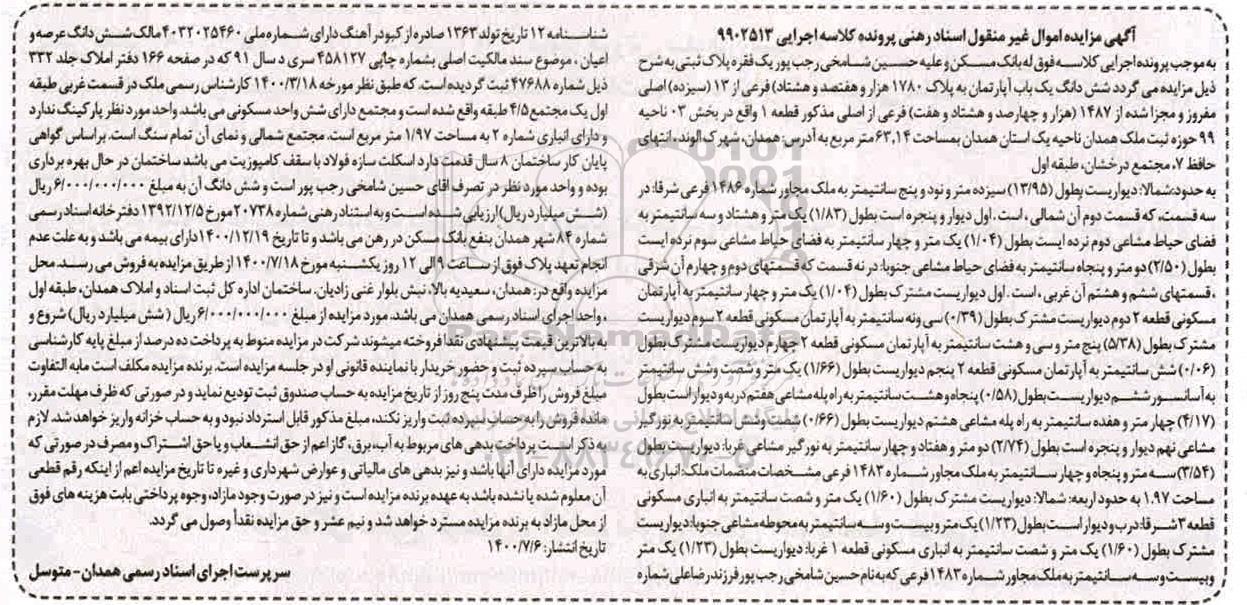 آگهی مزایده اموال غیر منقول اسناد رهنی پرونده کلاسه اجرایی ۹۹۰۲۵۱۳
به موجب پرونده اجرایی کلاسه فوق له بانک مسکن و علیه حسین شامخی رجب پور یک فقره پلاک ثبتی به شرح
ذیل مزایده می گردد شش دانگ یک باب آپارتمان به پلاک ۱۷۸۰ هزار و هفتصد و هشتاد) فرعی از ۱۳ (سیزده) اصلی
مفروز و مجزا شده از ۱۴۸۷ (هزار و چهارصد و هشتاد و هفت) فرعی از اصلی مذکور قطعه ۱ واقع در بخش ۰۳ ناحیه
۹۹ حوزه ثبت ملک همدان ناحیه یک استان همدان بمساحت ۶۳,۱۴ متر مربع به آدرس: همدان، شهرک الوند، انتهای
حافظ ۷، مجتمع درخشان، طبقه اول
به حدود: شمالا: دیواریست بطول (۱۳/۹۵) سیزده متر و نود و پنج سانتیمتر به ملک مجاور شماره ۱۴۸۶ فرعی شرقا: در
سه قسمت، که قسمت دوم آن شمالی ، است . اول دیوار و پنجره است بطول (۱/۸۳) یک متر و هشتاد و سه سانتیمتر به
فضای حیاط مشاعی دوم نرده ایست بطول (۱/۰۴) یک متر و چهار سانتیمتر به فضای حیاط مشاعی سوم نرده ایست
بطول (۲/۵۰) دو متر و پنجاه سانتیمتر به فضای حیاط مشاعی جنوبا: در نه قسمت که قسمتهای دوم و چهارم آن شرقی
، قسمتهای ششم و هشتم آن غربی ، است . اول دیواریست مشترک بطول (۱/۰۴) یک متر و چهار سانتیمتر به آپارتمان
مسکونی قطعه ۲ دوم دیواریست مشترک بطول (۰/۳۹) سی ونه سانتیمتر به آپارتمان مسکونی قطعه ۲ سوم دیواریست
مشترک بطول (۵/۳۸) پنج متر و سی و هشت سانتیمتر به آپارتمان مسکونی قطعه ۲ چهارم دیواریست مشترک بطول
(۰/۰۶) شش سانتیمتر به آپارتمان مسکونی قطعه ۲ پنجم دیواریست بطول (۱/۶۶) یک متر و شصت وشش سانتیمتر
به آسانسور ششم دیواریست بطول (۰/۵۸) پنجاه و هشت سانتیمتر به راه پله مشاعی هفتم درب و دیوار است بطول
(۴/۱۷) چهار متر و هفده سانتیمتر به راه پله مشاعی هشتم دیواریست بطول (۰/۶۶) شصت وشش سانتیمتر به نورگیر
مشاعی نهم دیوار و پنجره است بطول (۲/۷۴) دو متر و هفتاد و چهار سانتیمتر به نورگیر مشاعی غربا: دیواریست بطول
(۳/۵۴) سه متر و پنجاه و چهار سانتیمتر به ملک مجاور شماره ۱۴۸۳ فرعی مشخصات منضمات ملک: انباری به
مساحت ۱.۹۷ به حدود اربعه: شمالا: دیواریست مشترک بطول (۱/۶۰) یک متر و شصت سانتیمتر به انباری مسکونی
قطعه ۳ شرقا: درب و دیوار است بطول (۱/۲۳) یک متر و بیست و سه سانتیمتر به محوطه مشاعی جنوبا: دیواریست
مشترک بطول (۱/۶۰) یک متر و شصت سانتیمتر به انباری مسکونی قطعه ۱ غربا: دیواریست بطول (۱/۲۳) یک متر
وبیست و سه سانتیمتر به ملک مجاور شماره ۱۴۸۳ فرعی که به نام حسین شامخی رجب پور فرزند رضاعلی شماره
شناسنامه ۱۲ تاریخ تولد ۱۳۶۳ صادره از کبودرآهنگ دارای شماره ملی ۴۰۳۲۰۲۵۴۶۰ مالک شش دانگ عرصه و
اعیان ، موضوع سند مالکیت اصلی بشماره چاپی ۴۵۸۱۲۷ سری د سال ۹۱ که در صفحه ۱۶۶ دفتر املاک جلد ۳۳۲
ذیل شماره ۴۷۶۸۸ ثبت گردیده است، که طبق نظر مورخه ۱۴۰۰/۳/۱۸ کارشناس رسمی ملک در قسمت غربی طبقه
اول یک مجتمع ۴/۵ طبقه واقع شده است و مجتمع دارای شش واحد مسکونی می باشد. واحد مورد نظر پارکینگ ندارد
و دارای انباری شماره ۲ به مساحت ۱/۹۷ متر مربع است. مجتمع شمالی و نمای آن تمام سنگ است. براساس گواهی
پایان کار ساختمان ۸ سال قدمت دارد اسکلت سازه فولاد با سقف کامپوزیت می باشد ساختمان در حال بهره برداری
بوده و واحد مورد نظر در تصرف آقای حسین شامخی رجب پور است و شش دانگ آن به مبلغ ۶/۰۰۰/۰۰۰/۰۰۰ ریال
(شش میلیارد ریال) ارزیابی شده است و به استناد رهنی شماره ۲۰۷۳۸ مورخ ۱۳۹۲/۱۲/۵ دفتر خانه اسناد رسمی
شماره ۸۴ شهر همدان بنفع بانک مسکن در رهن می باشد و تا تاریخ ۱۴۰۰/۱۲/۱۹ دارای بیمه می باشد و به علت عدم
انجام تعهد پلاک فوق از ساعت ۹ الی ۱۲ روز یکشنبه مورخ ۱۴۰۰/۷/۱۸ از طریق مزایده به فروش می رسد. محل
مزایده واقع در: همدان، سعیدیه بالا، نبش بلوار غنی زادیان، ساختمان اداره کل ثبت اسناد و املاک همدان، طبقه اول
، واحد اجرای اسناد رسمی همدان می باشد. مورد مزایده از مبلغ ۶/۰۰۰/۰۰۰/۰۰۰ ریال ( شش میلیارد ریال) شروع و
به بالاترین قیمت پیشنهادی نقدا فروخته میشوند شرکت در مزایده منوط به پرداخت ده درصد از مبلغ پایه کارشناسی
به حساب سپرده ثبت و حضور خریدار یا نماینده قانونی او در جلسه مزایده است. برنده مزایده مکلف است مابه التفاوت
مبلغ فروش را ظرف مدت پنج روز از تاریخ مزایده به حساب صندوق ثبت تودیع نماید و در صورتی که ظرف مهلت مقرر،
مانده فروش را به حساب سپرده ثبت واریز نکند، مبلغ مذکور قابل استرداد نبود و به حساب خزانه واریز خواهد شد. لازم
به ذکر است پرداخت بدهی های مربوط به آب، برق، گاز اعم از حق انشعاب و یا حق اشتراک و مصرف در صورتی که
مورد مزایده دارای آنها باشد و نیز بدهی های مالیاتی و عوارض شهرداری و غیره تا تاریخ مزایده اعم از اینکه رقم قطعی
آن معلوم شده یا نشده باشد به عهده برنده مزایده است و نیز در صورت وجود مازاد، وجوه پرداختی بابت هزینه های فوق
از محل مازاد به برنده مزایده مسترد خواهد شد و نیم عشر و حق مزایده نقداً وصول می گردد.
تاریخ انتشار: ۱۴۰۰/۷/۶
سرپرست اجرای اسناد رسمی همدان - متوسل
ParsNamadData
۰۲۱-۸۸۳۴۹۶۷۰-۵